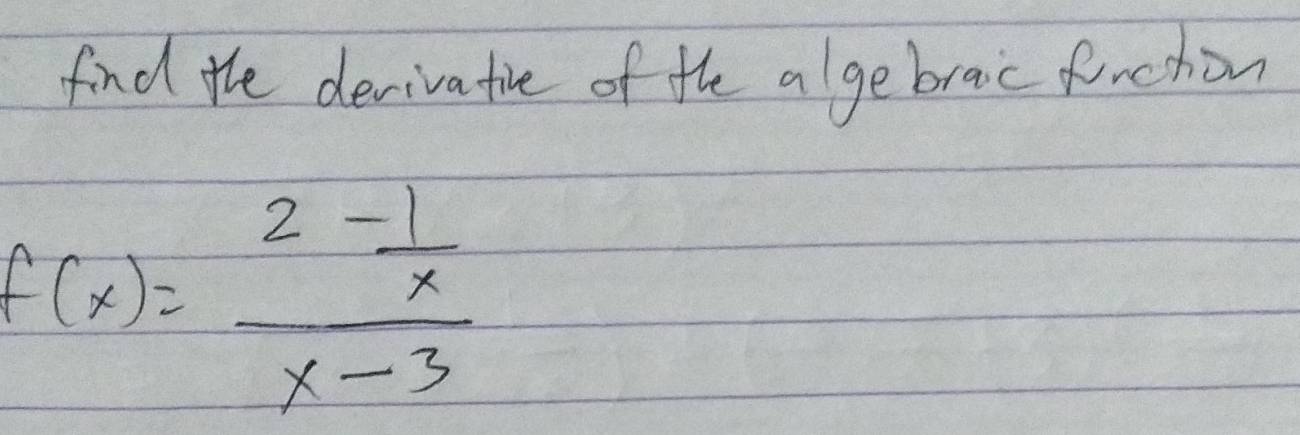 find the derivative of the algebraic function
f(x) = (2 - 1/x) / (x - 3)